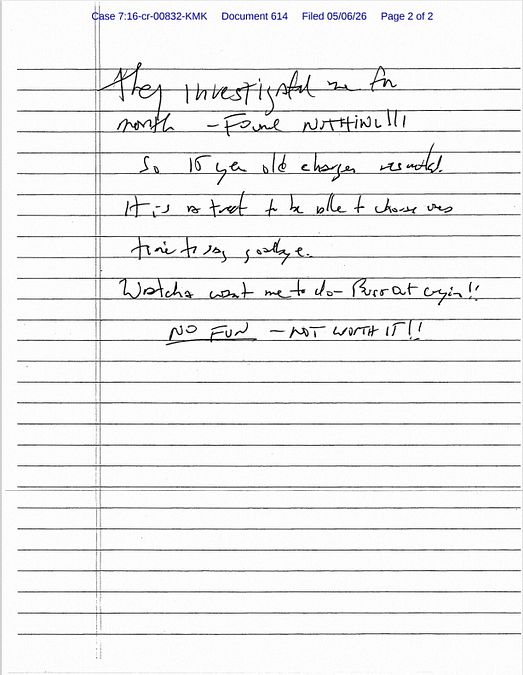 Case 7:16-cr-00832-KMK Document 614 Filed 05/06/26 Page 2 of 2
They investigated me for
month – Found NOTHING!!!
So 15 year old charges resulted.
It is a treat to be able to choose
time to say goodbye.
Watcha want me to do – Burst out cryin!!
NO FUN – NOT WORTH IT!!